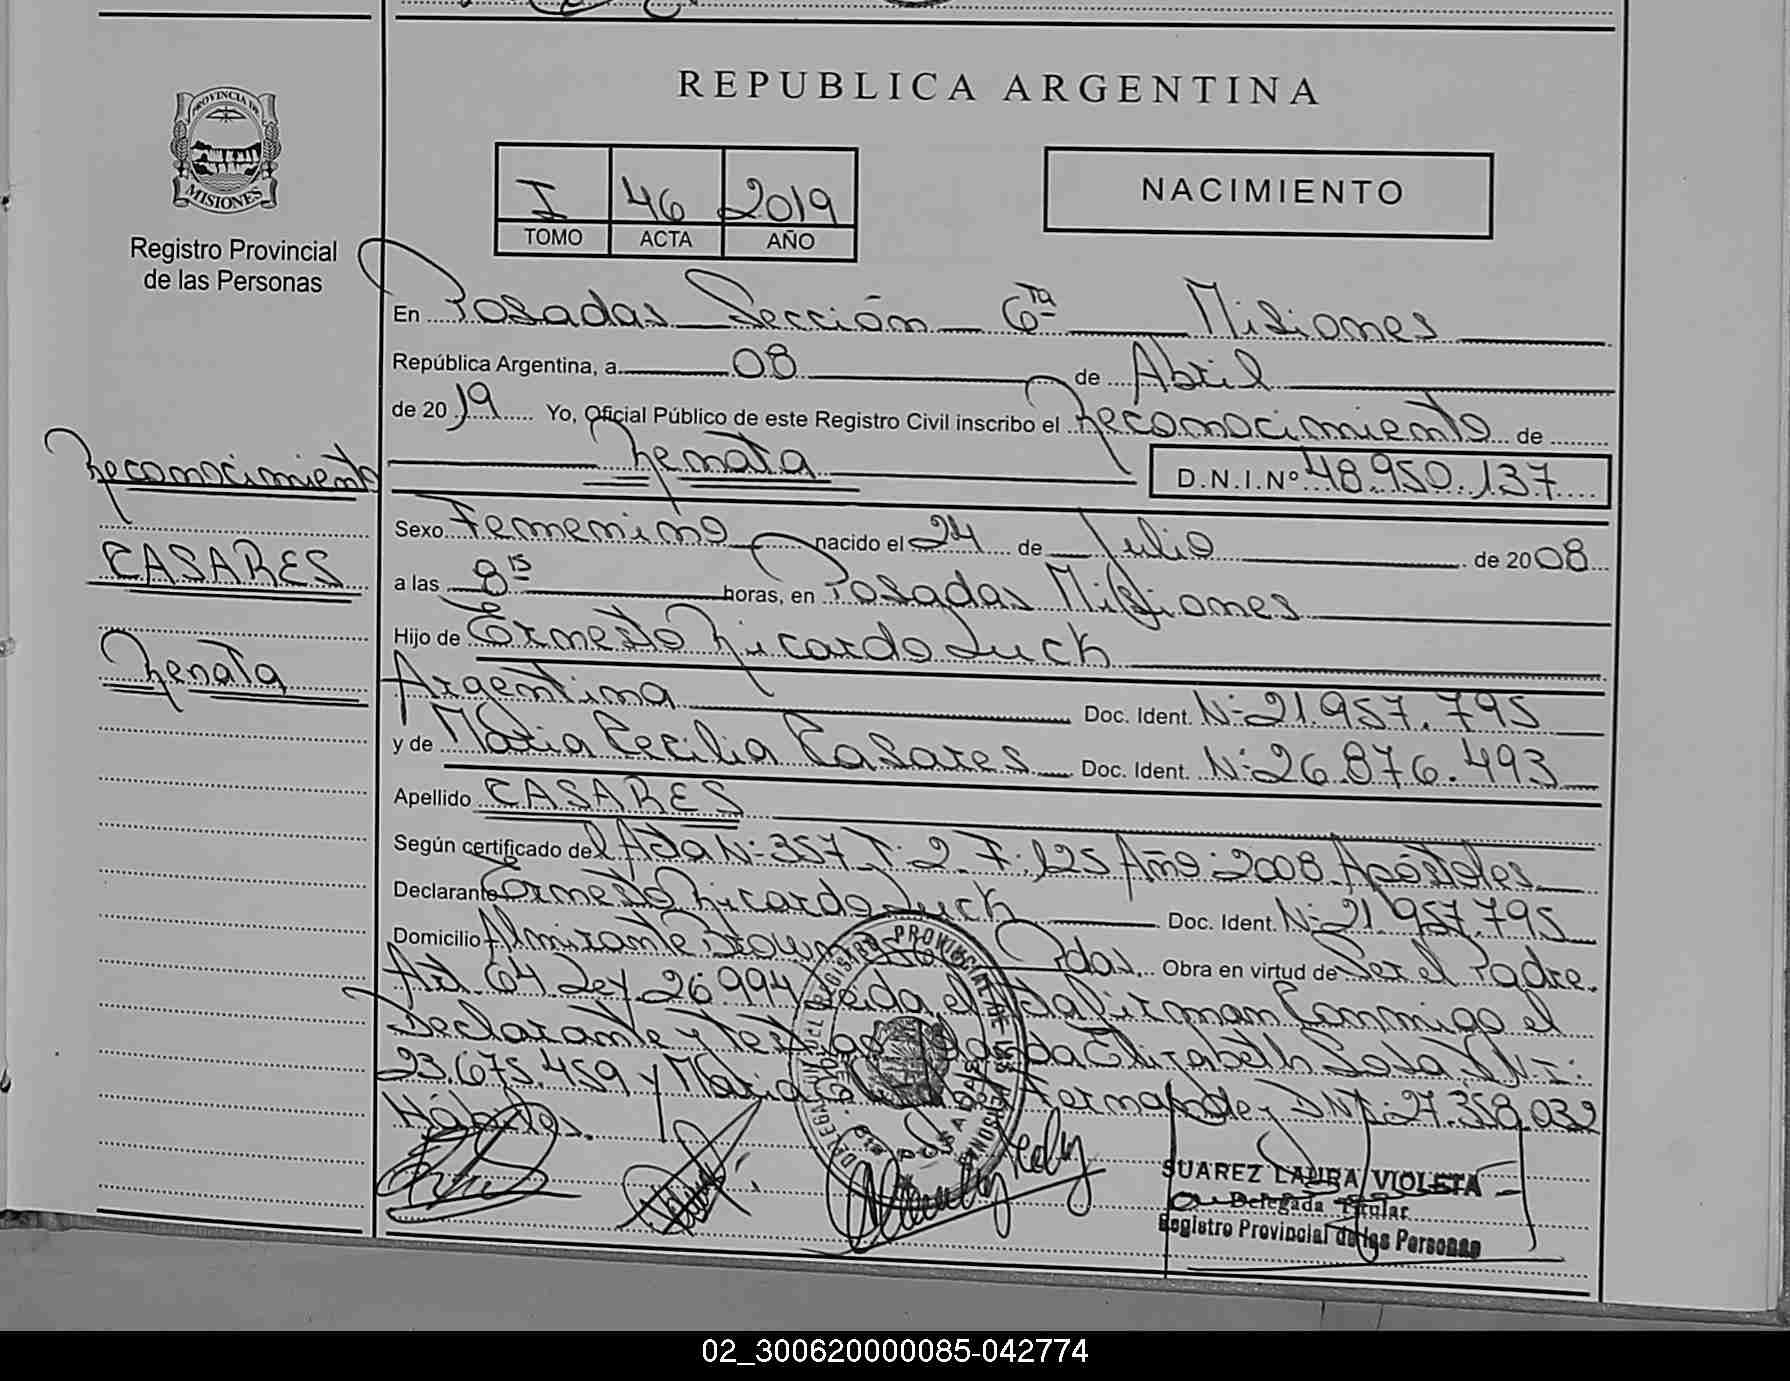 REPUBLICA ARGENTINA
PROVINCIA DE
MISIONES
Registro Provincial
de las Personas
I 46 2019
TOMO ACTA AÑO
NACIMIENTO
En Posadas Sección 6ta Misiones
República Argentina, a 08 de Abril
de 2019 Yo, Oficial Público de este Registro Civil inscribo el Reconocimiento de
Renata D.N.I.Nº 48.950.137
Reconocimiento
CASARES
Renata
Sexo Femenino nacido el 24 de Julio de 2008
a las 8 15 horas, en Posadas Misiones
Hijo de Ernesto Ricardo Luck
Argentina Doc. Ident. N: 21.957.795
y de Maria Cecilia Casares Doc. Ident. N: 26.876.493
Apellido CASARES
Según certificado del Acta N: 357 T: 2 F: 125 Año: 2008 Apóstoles
Declarante Ernesto Ricardo Luck Doc. Ident. N: 21.957.795
Domicilio Almirante Brown Pdas. Obra en virtud de Ser el Padre.
Art 64 Ley 26994 Leida el Acta firman Conmigo el
Declarante y Testigos Elizabeth Sosa DNI:
23.675.459 y Maria Fernandez DNI: 27.358.032
Hábiles.
REGISTRO PROVINCIAL DE LAS PERSONAS
POSADAS
SUAREZ LAURA VIOLETA
Delegada Titular
Registro Provincial de las Personas
02_300620000085-042774